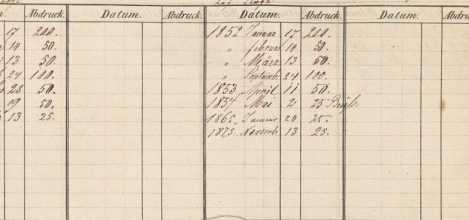 Abdruck. Datum. Abdruck. Datum. Abdruck. Datum. Abdr
17 200. 1852 Januar 17 200.
14 50. „ febru 14 50.
13 50. „ März 13 50.
24 100. „ Septemb 24 100.
28 50. 1853 April 11 50.
19 50. 1857 Mai 2 25
13 25. 1865 Januar 20 25.
1875 Novemb 13 25.